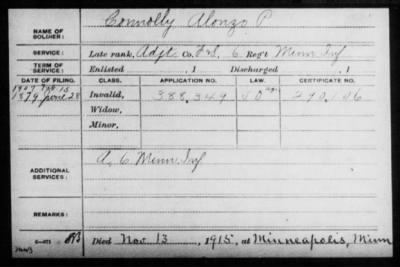 NAME OF SOLDIER: Connolly Alonzo P
SERVICE: Late rank, Adjt Co. F&S, 6 Reg't Minn Inf
TERM OF SERVICE: Enlisted , 1 Discharged , 1
DATE OF FILING. CLASS. APPLICATION NO. LAW. CERTIFICATE NO.
1907 15
1879 June 28 Invalid, 388.349 290.106
Widow,
Minor,
ADDITIONAL SERVICES: A, 6 Minn Inf
REMARKS:
Died Nov 13, 1915, at Minneapolis, Minn